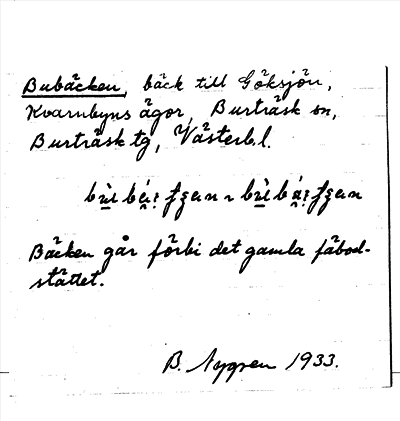 Bubäcken, bäck till Göksjön,
Kvarnbyns ägor, Burträsk sn,
Burträsk tg, Västerb.l.
Bäcken går förbi det gamla fäbod-
stället.
B. Nygren 1933.